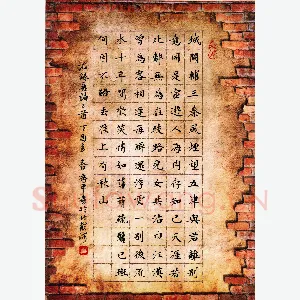 城闕輔三秦風煙望五津與君離別
意同是宦遊人海內存知己天涯若
比鄰無為在歧路兒女共沾巾江漢
曾為客相逢每醉還浮雲一別後流
水十年間歡笑情如舊蕭疏鬢已斑
何因不歸去淮上有秋山
二首 丁酉